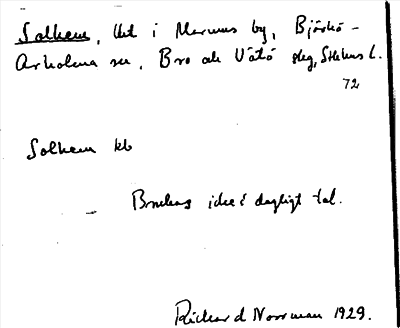 Solhem, lht i Marums by, Björkö-
Arholma sn, Bro och Vätö slg, Sthlms l.
72
Solhem kb
Brukas icke i dagligt tal.
Richard Norrman 1929.